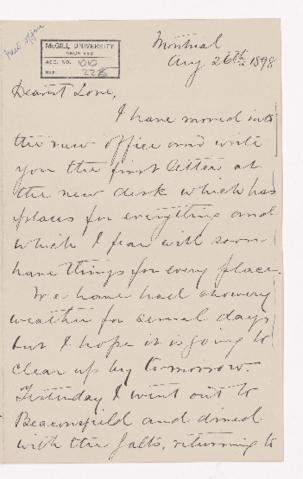 new office
McGILL UNIVERSITY
ARCHIVES
ACC. NO. 1010
REF.
Montreal
Aug 26th 1898
Dearest Love,
I have moved into
the new office and write
you the first letter at
the new desk which has
places for everything and
which I fear will soon
have things for every place.
We have had showery
weather for several days
but I hope it is going to
clear up by tomorrow.
Yesterday I went out to
Beaconsfield and dined
with the Galts, returning to